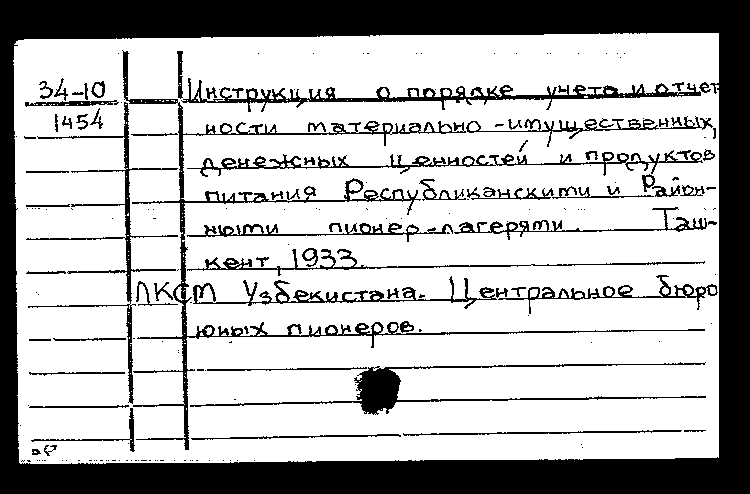 34-10 Инструкция о порядке учета и отчет
1454 ности материально-имущественных,
денежных ценностей и продуктов
питания Республиканскими и Район-
ными пионер-лагерями. Таш-
кент, 1933.
ЛКСМ Узбекистана. Центральное бюро
юных пионеров.